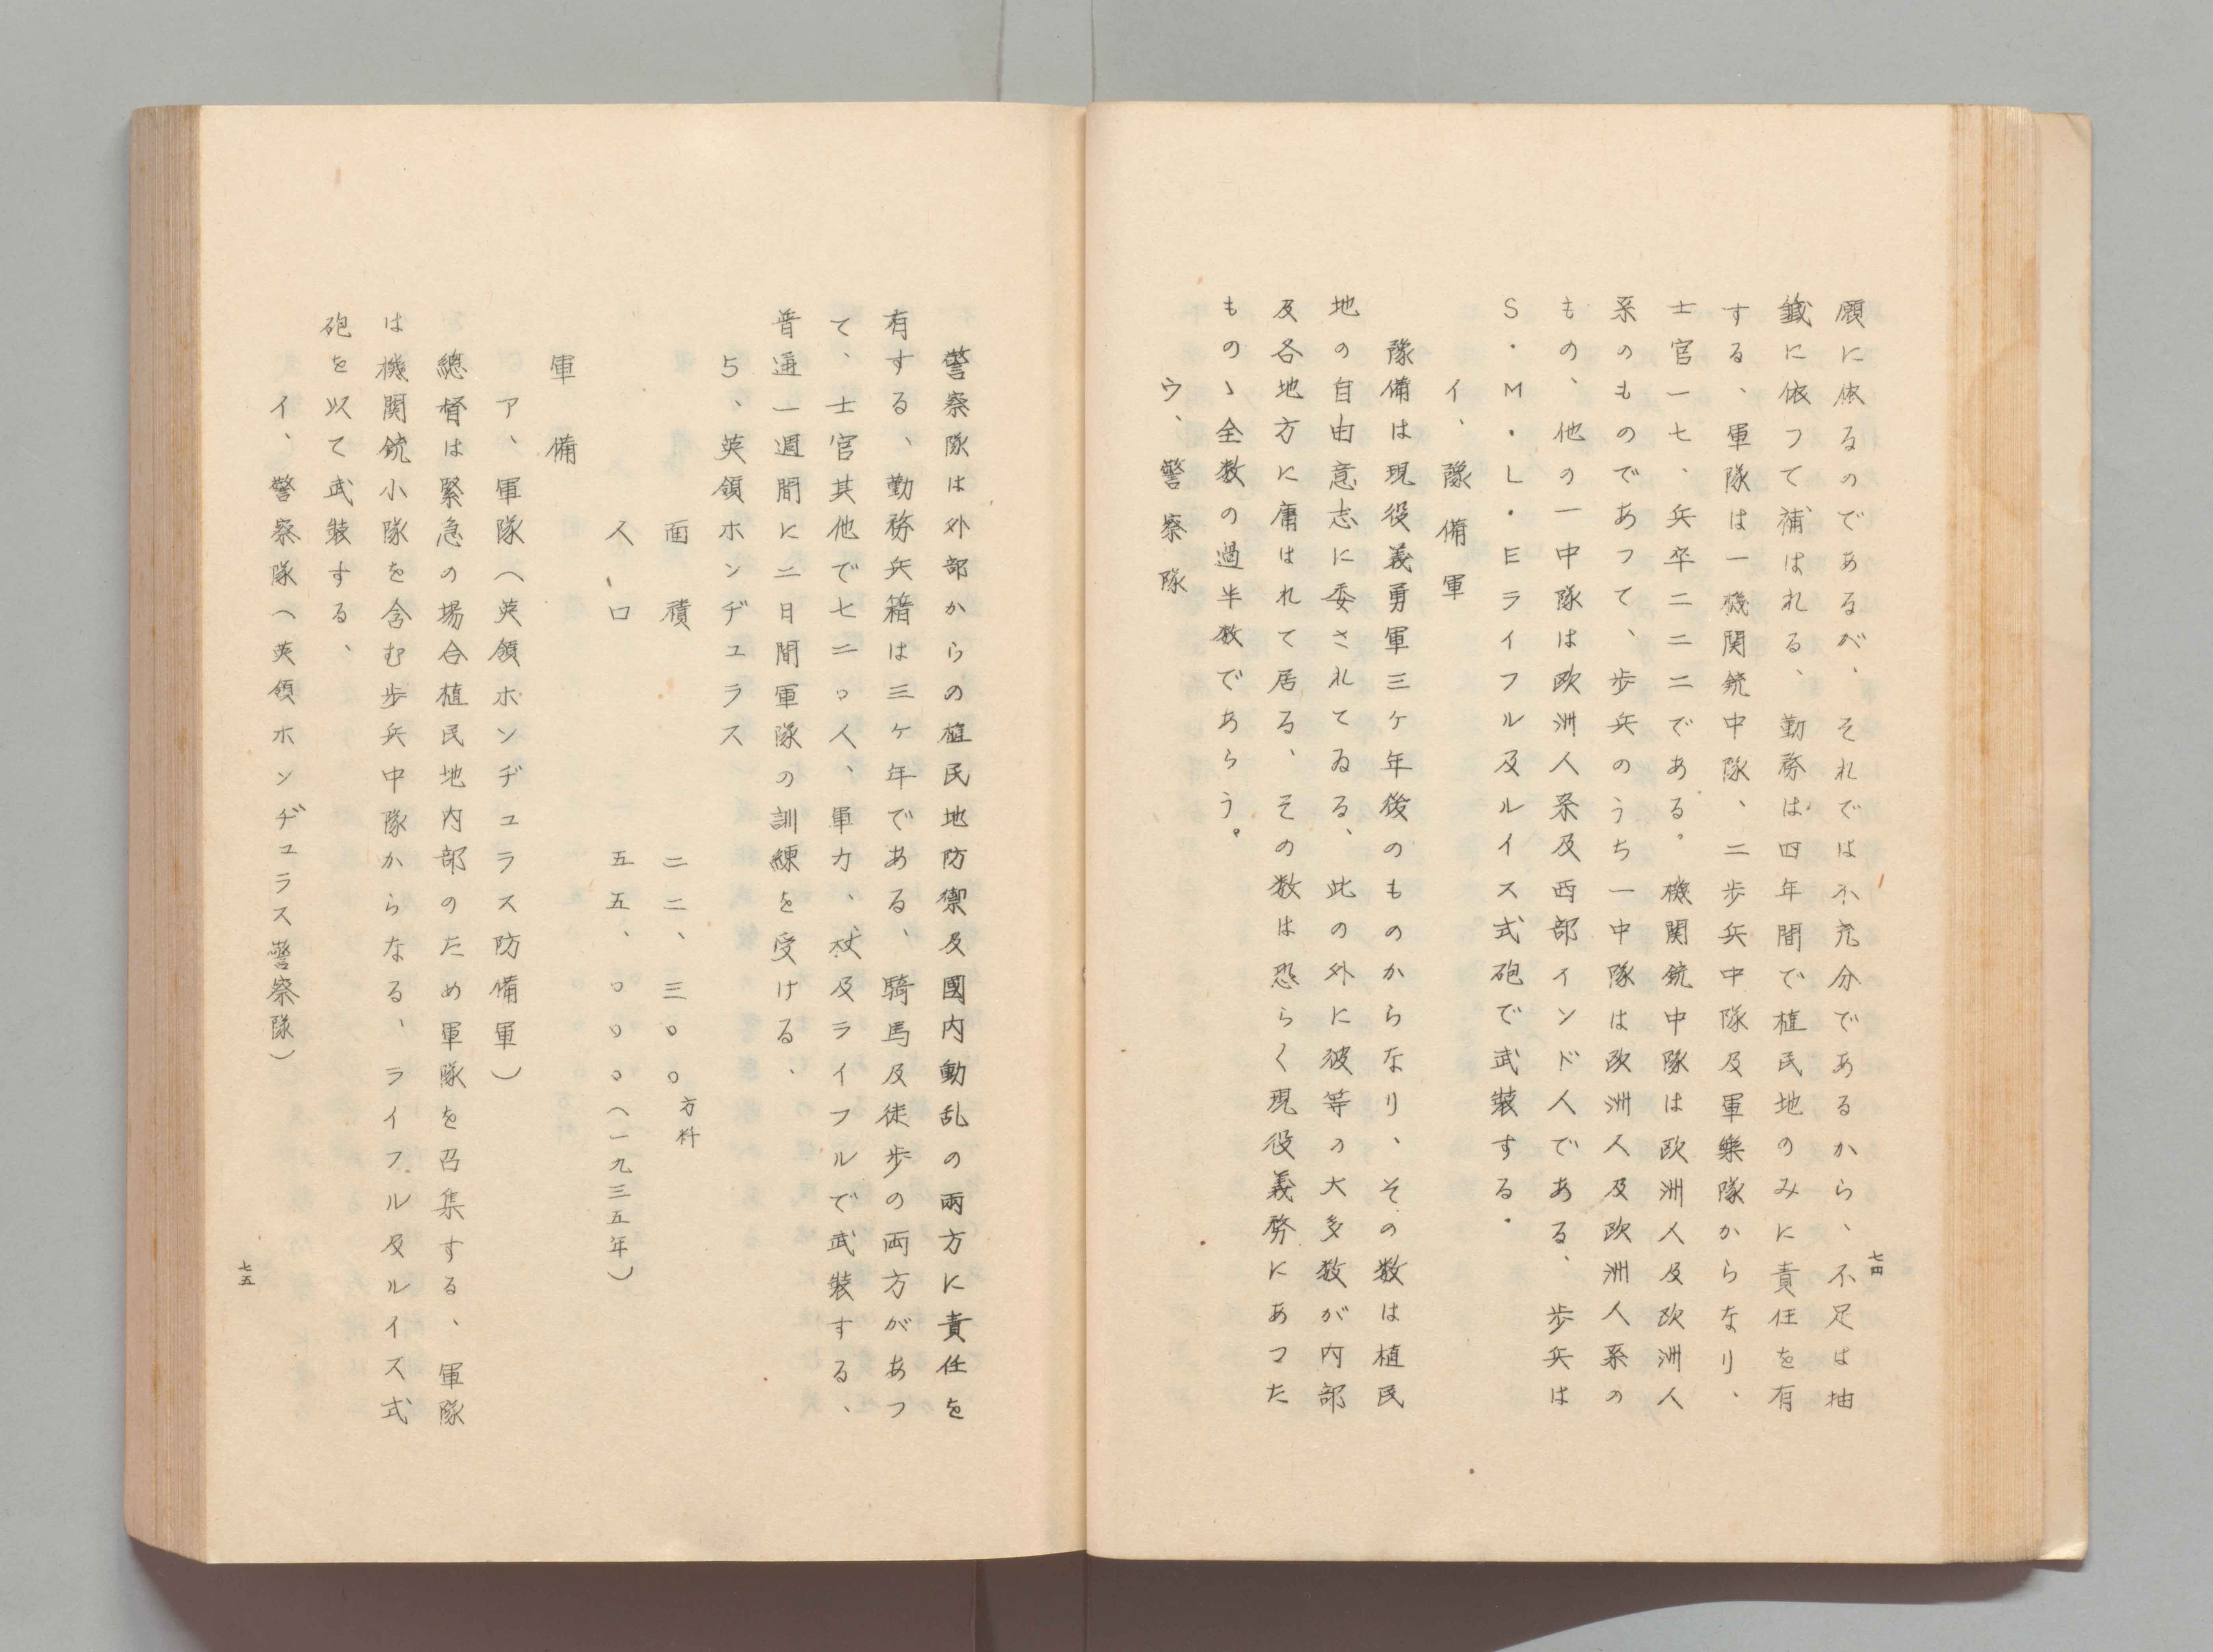 七四
願に依るのであるが、それでは不充分であるから、不足は抽
籤に依つて補はれる、勤務は四年間で植民地のみに責任を有
する、軍隊は一機関銃中隊、二歩兵中隊及軍樂隊からなり、
士官一七、兵卒二二二である。機関銃中隊は欧洲人及欧洲人
系のものであつて、歩兵のうち一中隊は欧洲人及欧洲人系の
もの、他の一中隊は欧洲人系及西部インド人である、歩兵は
S・M・L・Eライフル及ルイス式砲で武装する・
イ、豫備軍
豫備は現役義勇軍三ケ年後のものからなり、その数は植民
地の自由意志に委されてゐる、此の外に彼等の大多数が内部
及各地方に庸はれて居る、その数は恐らく現役義務にあつた
ものゝ全数の過半数であらう。
ウ、警察隊
警察隊は外部からの植民地防禦及國内動乱の兩方に責任を
有する、勤務兵籍は三ケ年である、騎馬及徒歩の両方があつ
て、士官其他で七二〇人、軍力、杖及ライフルで武装する、
普通一週間に二日間軍隊の訓練を受ける、
5、英領ホンヂュラス
面積　二二、三〇〇方粁
人口　五五、〇〇〇（一九三五年）
軍備
ア、軍隊（英領ホンヂュラス防備軍）
總督は緊急の場合植民地内部のため軍隊を召集する、軍隊
は機関銃小隊を含む歩兵中隊からなる、ライフル及ルイス式
砲を以て武装する、
イ、警察隊（英領ホンヂュラス警察隊）
七五